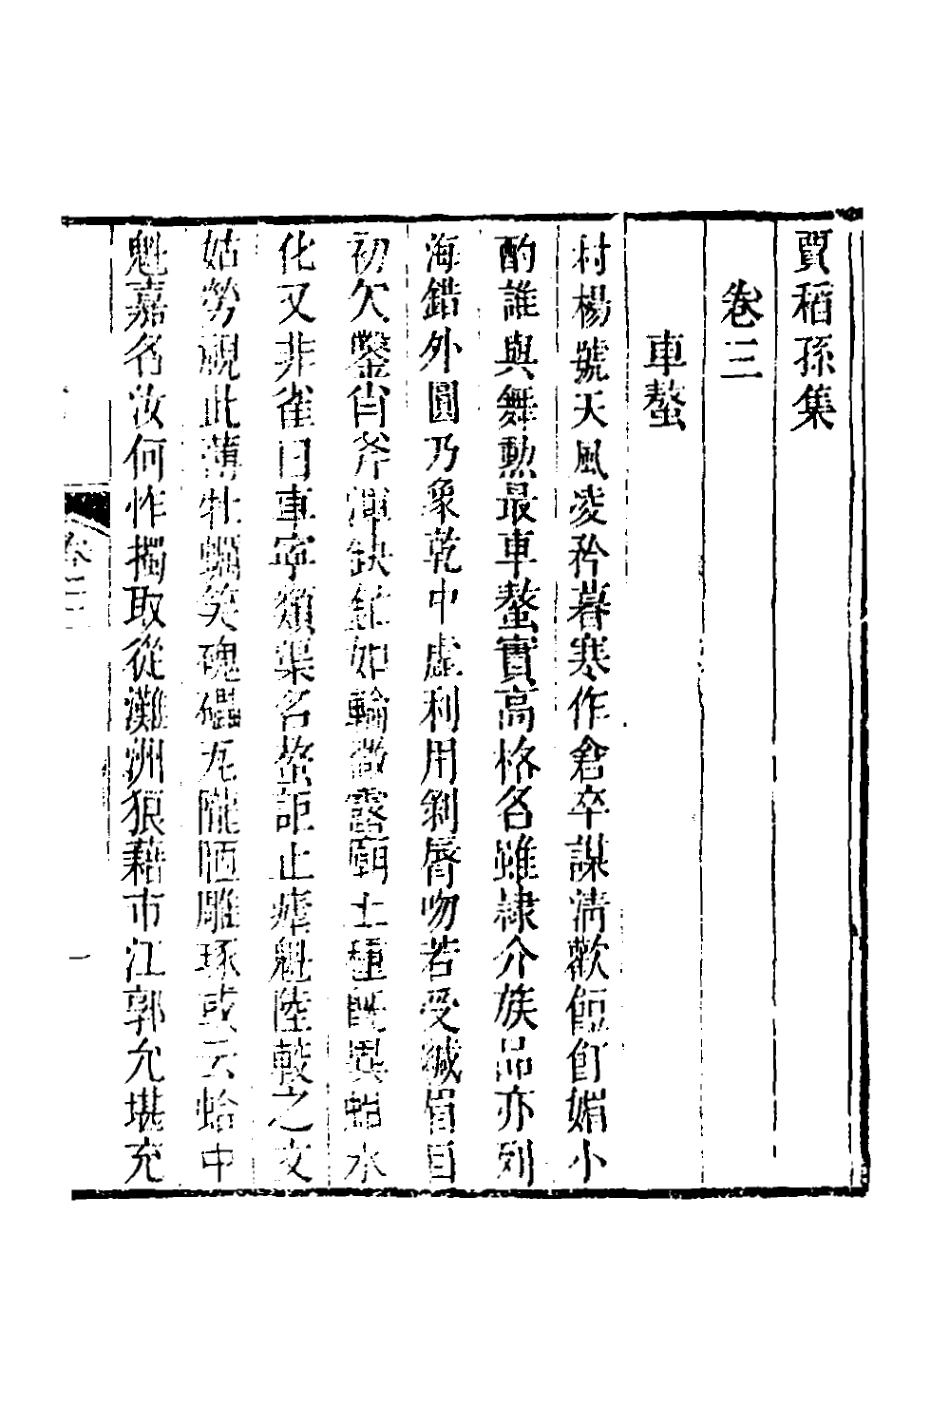 賈稻孫集
卷三
車螯
村楊號天風凌矜暮寒作倉卒謀淸歡餖飣媚小
酌誰與舞勲最車螯實高格各雖隸介族品亦列
海錯外圓乃象乾中虛利用剝脣吻若受緘眉目
初欠鑿省斧渾缺如輪微露土種旣異蛤水
化又非雀日車寧類渠名螯詎止瘧魁陸轂之文
姑勞覵此薄牡蠣笑磈礧瓦隴陋雕琢或云蛤中
魁嘉名汝何怍擉取從灘洲狼藉市江郭允堪充
卷三
一